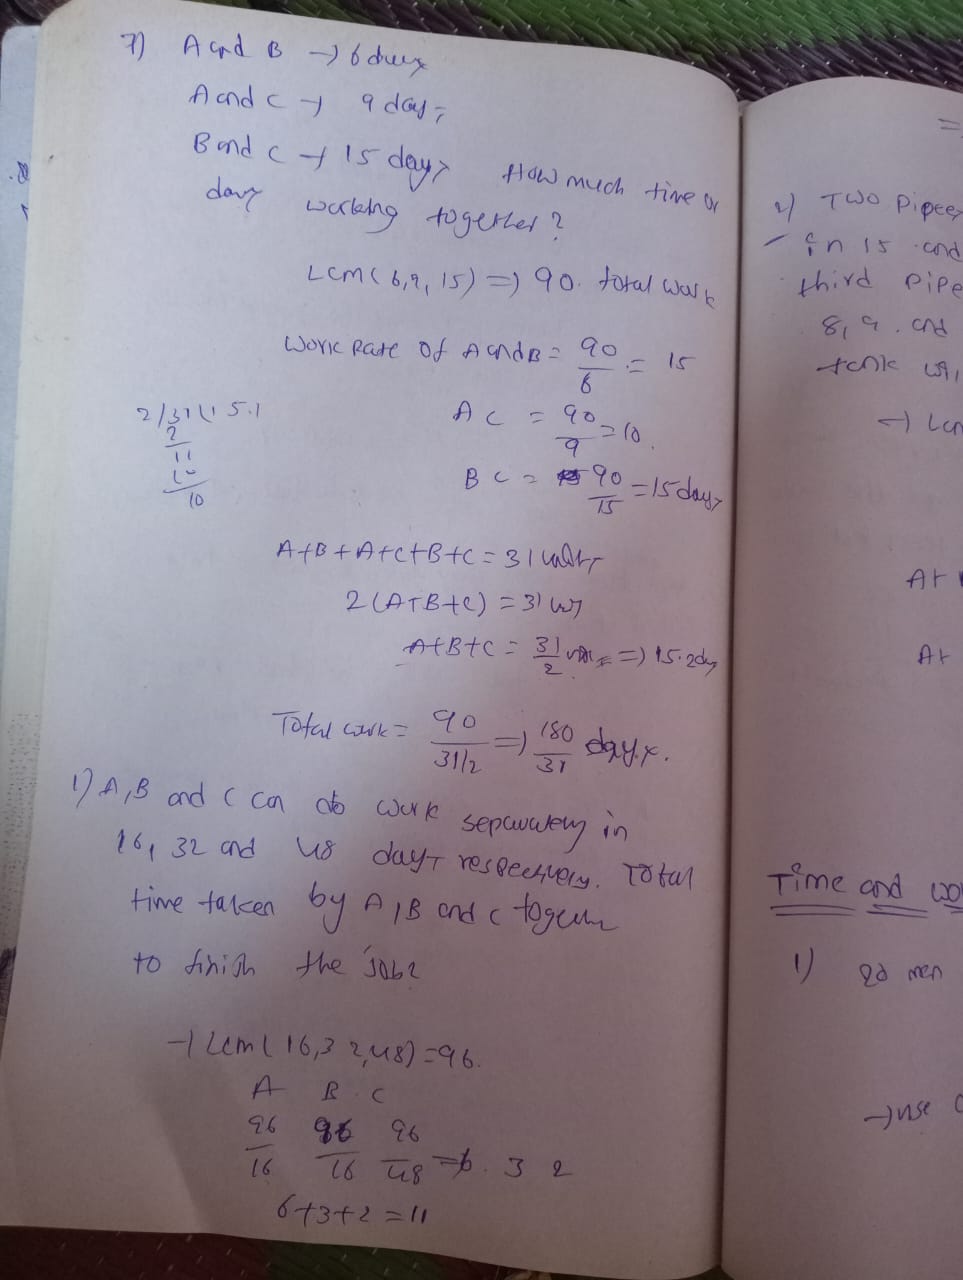 7) A and B → 6 days
A and C → 9 days
B and C → 15 days How much time or
days working together?
LCM (6,9,15) => 90. total work
Work Rate of A and B = 90/6 = 15
2/31(15.1
2
11
10
10
A C = 90/9 = 10.
B C = 90/15 = 15 days
A+B+A+C+B+C = 31 units
2(A+B+C) = 31
A+B+C = 31/2 => 15.2 day
Total work = 90/31/2 => 180/31 days.
1) A, B and C can do work separately in
16, 32 and 48 days respectively. Total
time taken by A, B and C together
to finish the job?
→ Lcm(16,32,48) = 96.
A B C
96/16 96/16 96/48 => 6. 3 2
6+3+2 = 11
=
2) Two Pipes
in 15 and
third Pipe
8, 9. and
tank
→ Lcm
At
At
Time and wo
1) 20 men
→ use